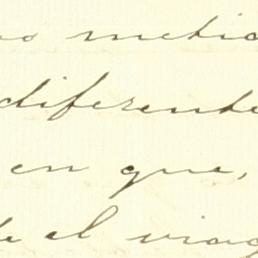 os metic
diferente
en que,
te el viag